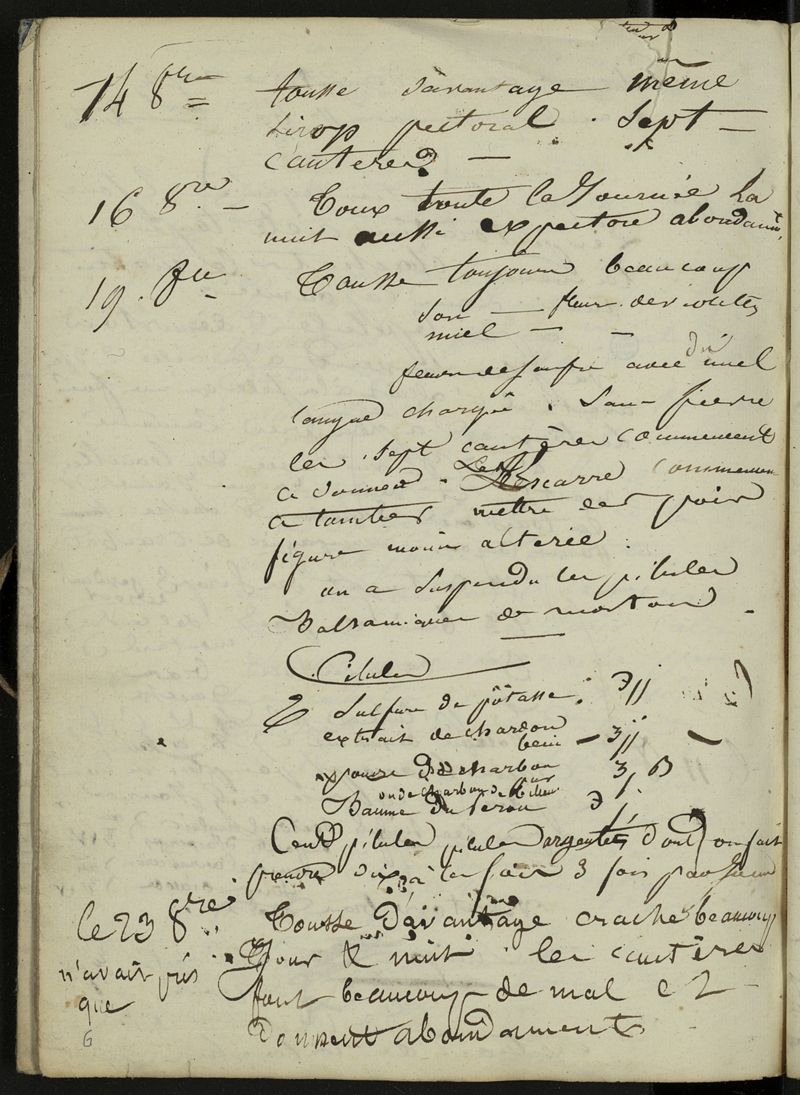 14 8bre = tousse davantage même
sirop pectoral . Sept —
cauteres —
16 8bre — Toux toute la Journée La
nuit aussi expectore abondamt.
19. 8bre Tousse toujours beaucoup
Son — fleur de violettes
miel — —
fleur de soufre avec du miel
langue chargée . Sans fievre
les sept cautères commencent
a donner . Les Escarre commencen
a tomber mettre des pois
figure moins alterée .
on a suspendu les pilules
Balsamiques de morton .
Pilules
Sulfure de pôtasse
extrait de chardon
beni
poudre de charbon
ou de charbon de tilleul
Baume du Perou
Cent pilules pilules argentées dont on fait
prendre dix à la fois 3 fois par Jour
le 23 8bre Tousse davantage crache beaucoup
Jour & nuit . les cautères
n'avait pris
font beaucoup de mal et
que
Donnent abondamment
6